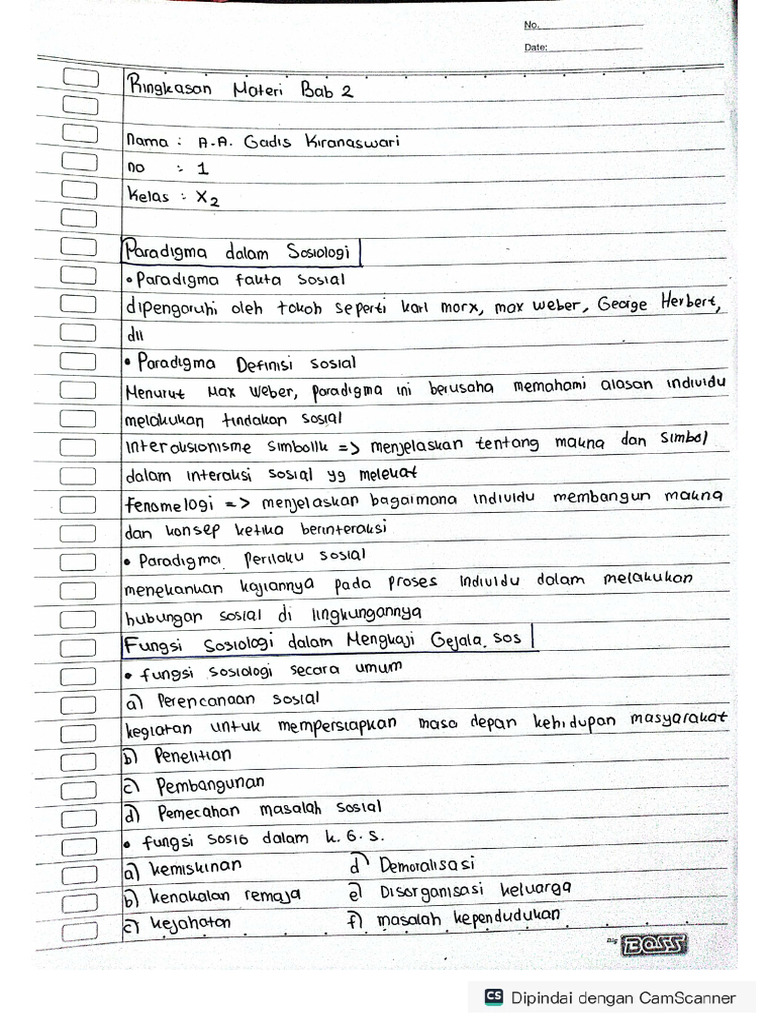 No.
Date:
Ringkasan Materi Bab 2
Nama : A.A. Gadis Kiranaswari
no : 1
Kelas : X2
Paradigma dalam Sosiologi
• Paradigma fakta sosial
dipengaruhi oleh tokoh seperti karl marx, max weber, George Herbert,
dll
• Paradigma Definisi sosial
Menurut Max Weber, paradigma ini berusaha memahami alasan individu
melakukan tindakan sosial
Interaksionisme simbolik => menjelaskan tentang makna dan simbol
dalam interaksi sosial yg melekat
fenomelogi => menjelaskan bagaimana individu membangun makna
dan konsep ketika berinteraksi
• Paradigma Perilaku sosial
menekankan kajiannya pada proses individu dalam melakukan
hubungan sosial di lingkungannya
Fungsi Sosiologi dalam Mengkaji Gejala sos
• fungsi sosiologi secara umum
a) Perencanaan sosial
kegiatan untuk mempersiapkan masa depan kehidupan masyarakat
b) Penelitian
c) Pembangunan
d) Pemecahan masalah sosial
• fungsi sosio dalam k. G. S.
a) kemiskinan d) Demoralisasi
b) kenakalan remaja e) Disorganisasi keluarga
c) kejahatan f) masalah kependudukan
Big BOSS
CS Dipindai dengan CamScanner